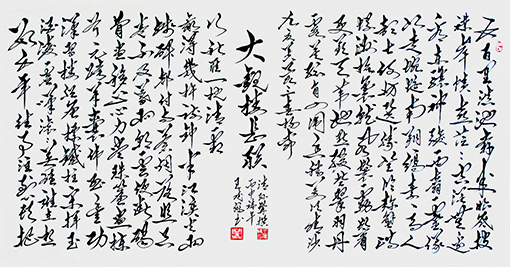 五百里滇池奔來眼底
披襟岸幘喜茫茫空闊無邊
看東驤神駿西翥靈儀
北走蜿蜒南翔縞素高人
韻士何妨選勝登臨趁蟹嶼
螺洲梳裹就風鬟霧鬢更
蘋天葦地點綴些翠羽丹
霞莫孤負四圍香稻萬頃晴沙
九夏芙蓉三春楊柳
大觀樓長聯
數千年往事注到心頭把
酒凌虛嘆滾滾英雄誰在想
漢習樓船唐標鐵柱宋揮玉
斧元跨革囊偉烈豐功
費盡移山心力盡珠簾畫棟
卷不及暮雨朝雲便斷碣
殘碑都付與蒼煙落照只
贏得幾杵疏鐘半江漁火兩
行秋雁一枕清霜
清孫髯撰